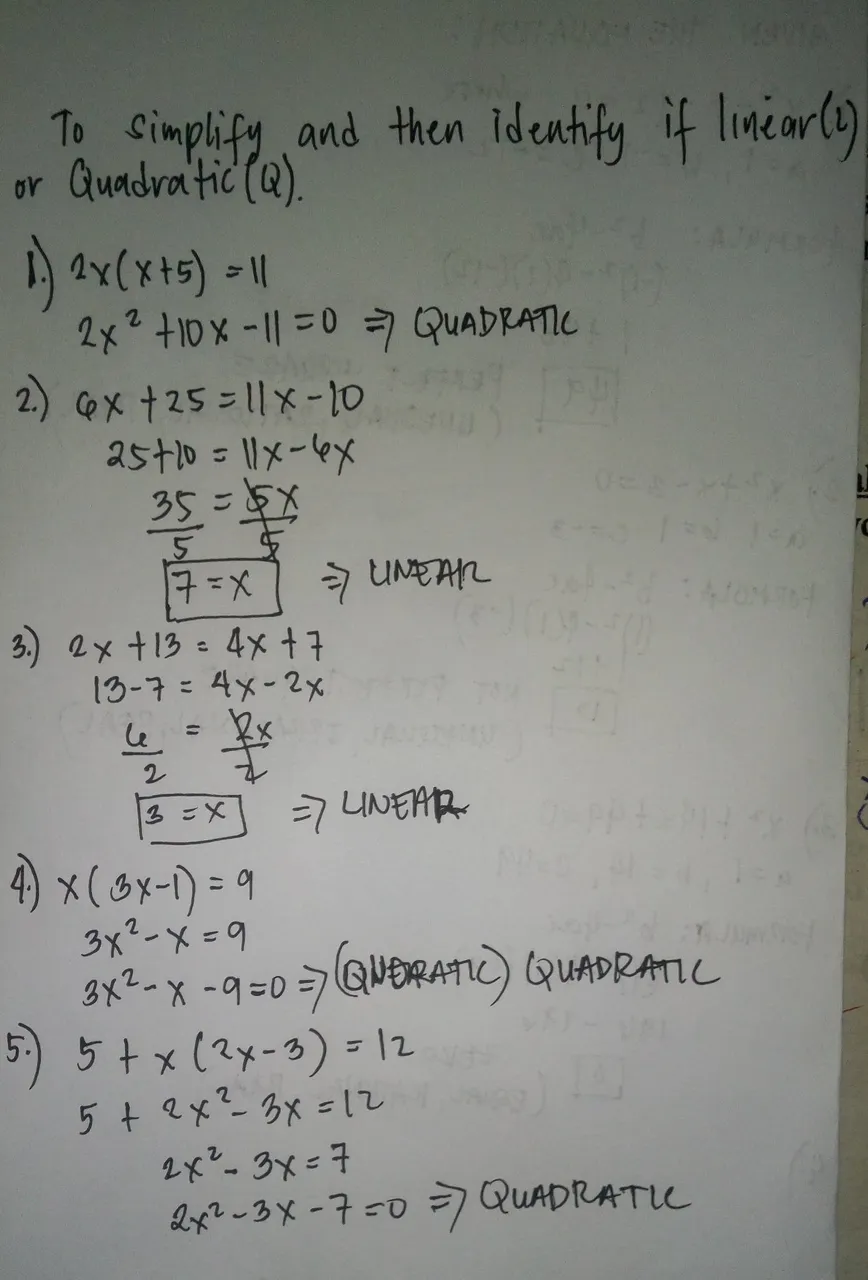 To simplify and then identify if linear(L)
or Quadratic(Q).
1.) 2x(x+5) = 11
2x² + 10x - 11 = 0 ⇒ QUADRATIC
2.) 6x + 25 = 11x - 10
25+10 = 11x - 6x
35 = 5x
5 5
7 = x ⇒ LINEAR
3.) 2x + 13 = 4x + 7
13-7 = 4x - 2x
6 = 2x
2 2
3 = x ⇒ LINEAR
4.) x(3x-1) = 9
3x² - x = 9
3x² - x - 9 = 0 ⇒ (QUDRATIC) QUADRATIC
5.) 5 + x(2x-3) = 12
5 + 2x² - 3x = 12
2x² - 3x = 7
2x² - 3x - 7 = 0 ⇒ QUADRATIC